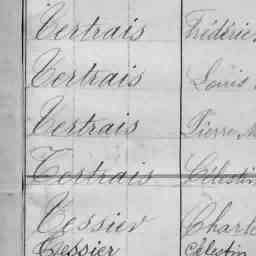 Tertrais Frédéric
Tertrais Louis
Tertrais Pierre M
Tertrais Célestin
Tessier Charle
Tessier Célestin